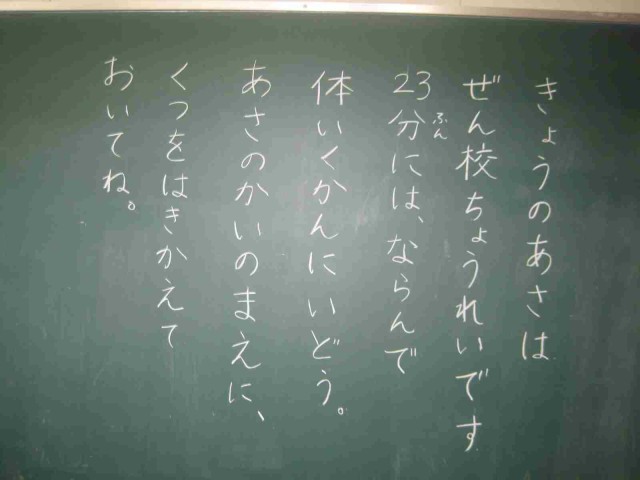 きょうのあさは
ぜん校ちょうれいです
23分には、ならんで
ふん
体いくかんにいどう。
あさのかいのまえに、
くつをはきかえて
おいてね。